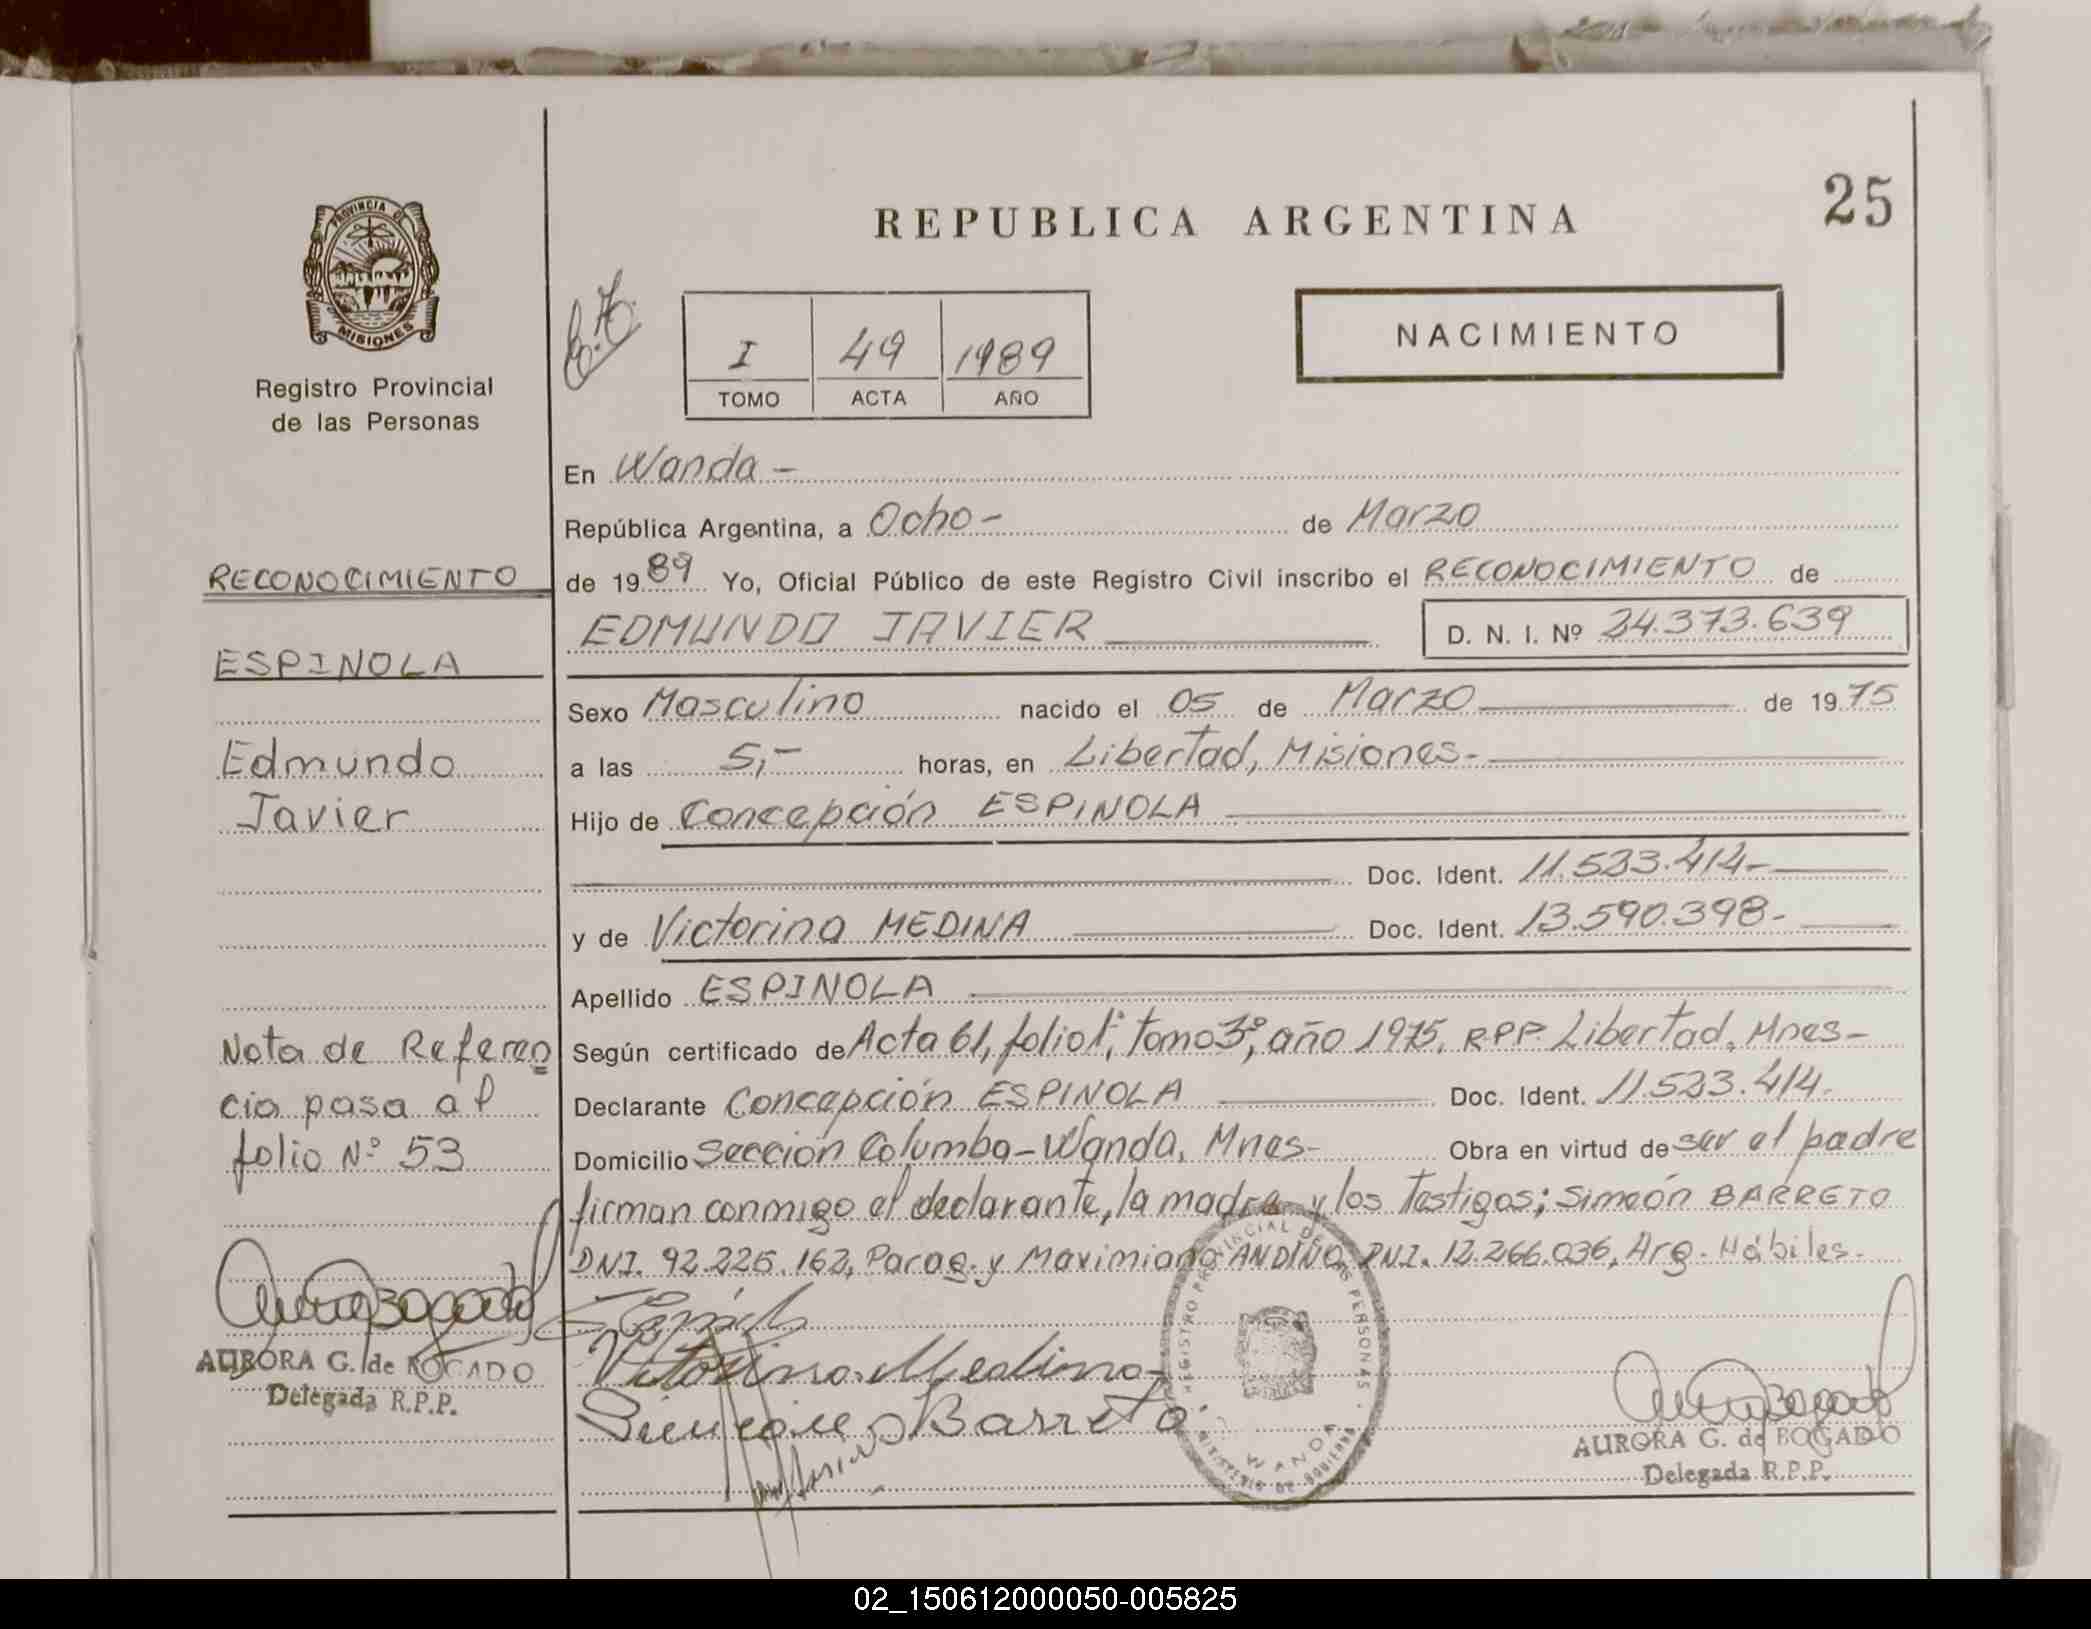 25
REPUBLICA ARGENTINA
PROVINCIA DE
MISIONES
Registro Provincial
de las Personas
I 49 1989
TOMO ACTA AÑO
NACIMIENTO
En Wanda -
República Argentina, a Ocho - de Marzo
de 1989 Yo, Oficial Público de este Registro Civil inscribo el RECONOCIMIENTO de
EDMUNDO JAVIER D. N. I. Nº 24.373.639
Sexo Masculino nacido el 05 de Marzo de 1975
a las 5,- horas, en Libertad, Misiones.-
Hijo de Concepción ESPINOLA
Doc. Ident. 11.523.414-
y de Victorina MEDINA Doc. Ident. 13.590.398-
Apellido ESPINOLA
Según certificado de Acta 61, folio 1°, tomo 3°, año 1975, R.P.P. Libertad, Mnes-
Declarante Concepción ESPINOLA Doc. Ident. 11.523.414.
Domicilio Sección Columba-Wanda, Mnes- Obra en virtud de ser el padre
firman conmigo el declarante, la madre y los testigos; Simeón BARRETO
DNI. 92.225.162, Parag. y Maximiano ANDINO DNI. 12.266.036, Arg. Hábiles-
Victorina Medina-
Barreto
REGISTRO PROVINCIAL DE LAS PERSONAS
MINISTERIO DE GOBIERNO
WANDA
AURORA G. de BOGADO
Delegada R.P.P.
RECONOCIMIENTO
ESPINOLA
Edmundo
Javier
Nota de Referen
cia pasa al
folio Nº 53
AURORA G. de BOGADO
Delegada R.P.P.
02_150612000050-005825